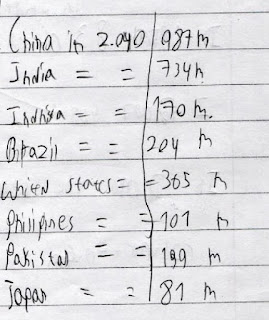 China in 2.040 987 m
India = = 734 m
Indhisa = = 170 m.
Brazil = = 204 m
Uniten states = = 365 m
Philipines = = 101 m
Pakistan = = 199 m
Japan = = 81 m